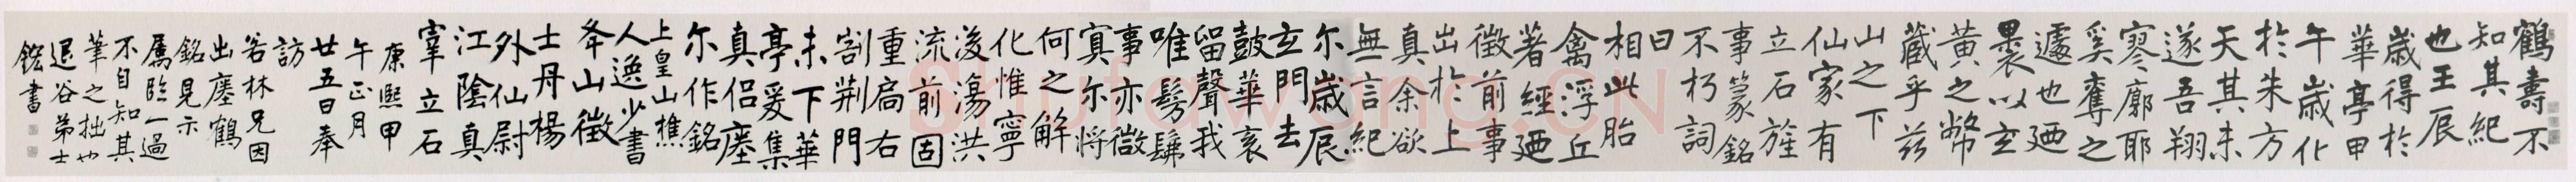 鶴壽不
知其紀
也王辰
歲得於
華亭甲
午歲化
於朱方
天其未
遂吾翔
寥廓耶
奚奪之
遽也廼
裹以玄
黃之幣
藏乎茲
山之下
仙家有
立石旌
事篆銘
不朽詞
曰
相此胎
禽浮丘
著經廼
徵前事
出於上
真余欲
無言紀
尔歲辰
玄門去
鼓華表
留聲我
唯髣髴
事亦微
冥尔將
何之解
化惟寧
後蕩洪
流前固
重扃右
割荆門
未下華
亭爰集
真侶瘞
尔作銘
上皇山樵
人逸少書
夅山徵
士丹楊
外仙尉
江陰真
宰立石
康熙甲
午正月
廿五日奉
訪
若林兄因
出瘞鶴
銘見示
屬臨一過
不自知其
筆之拙也
退谷弟士
鋐書